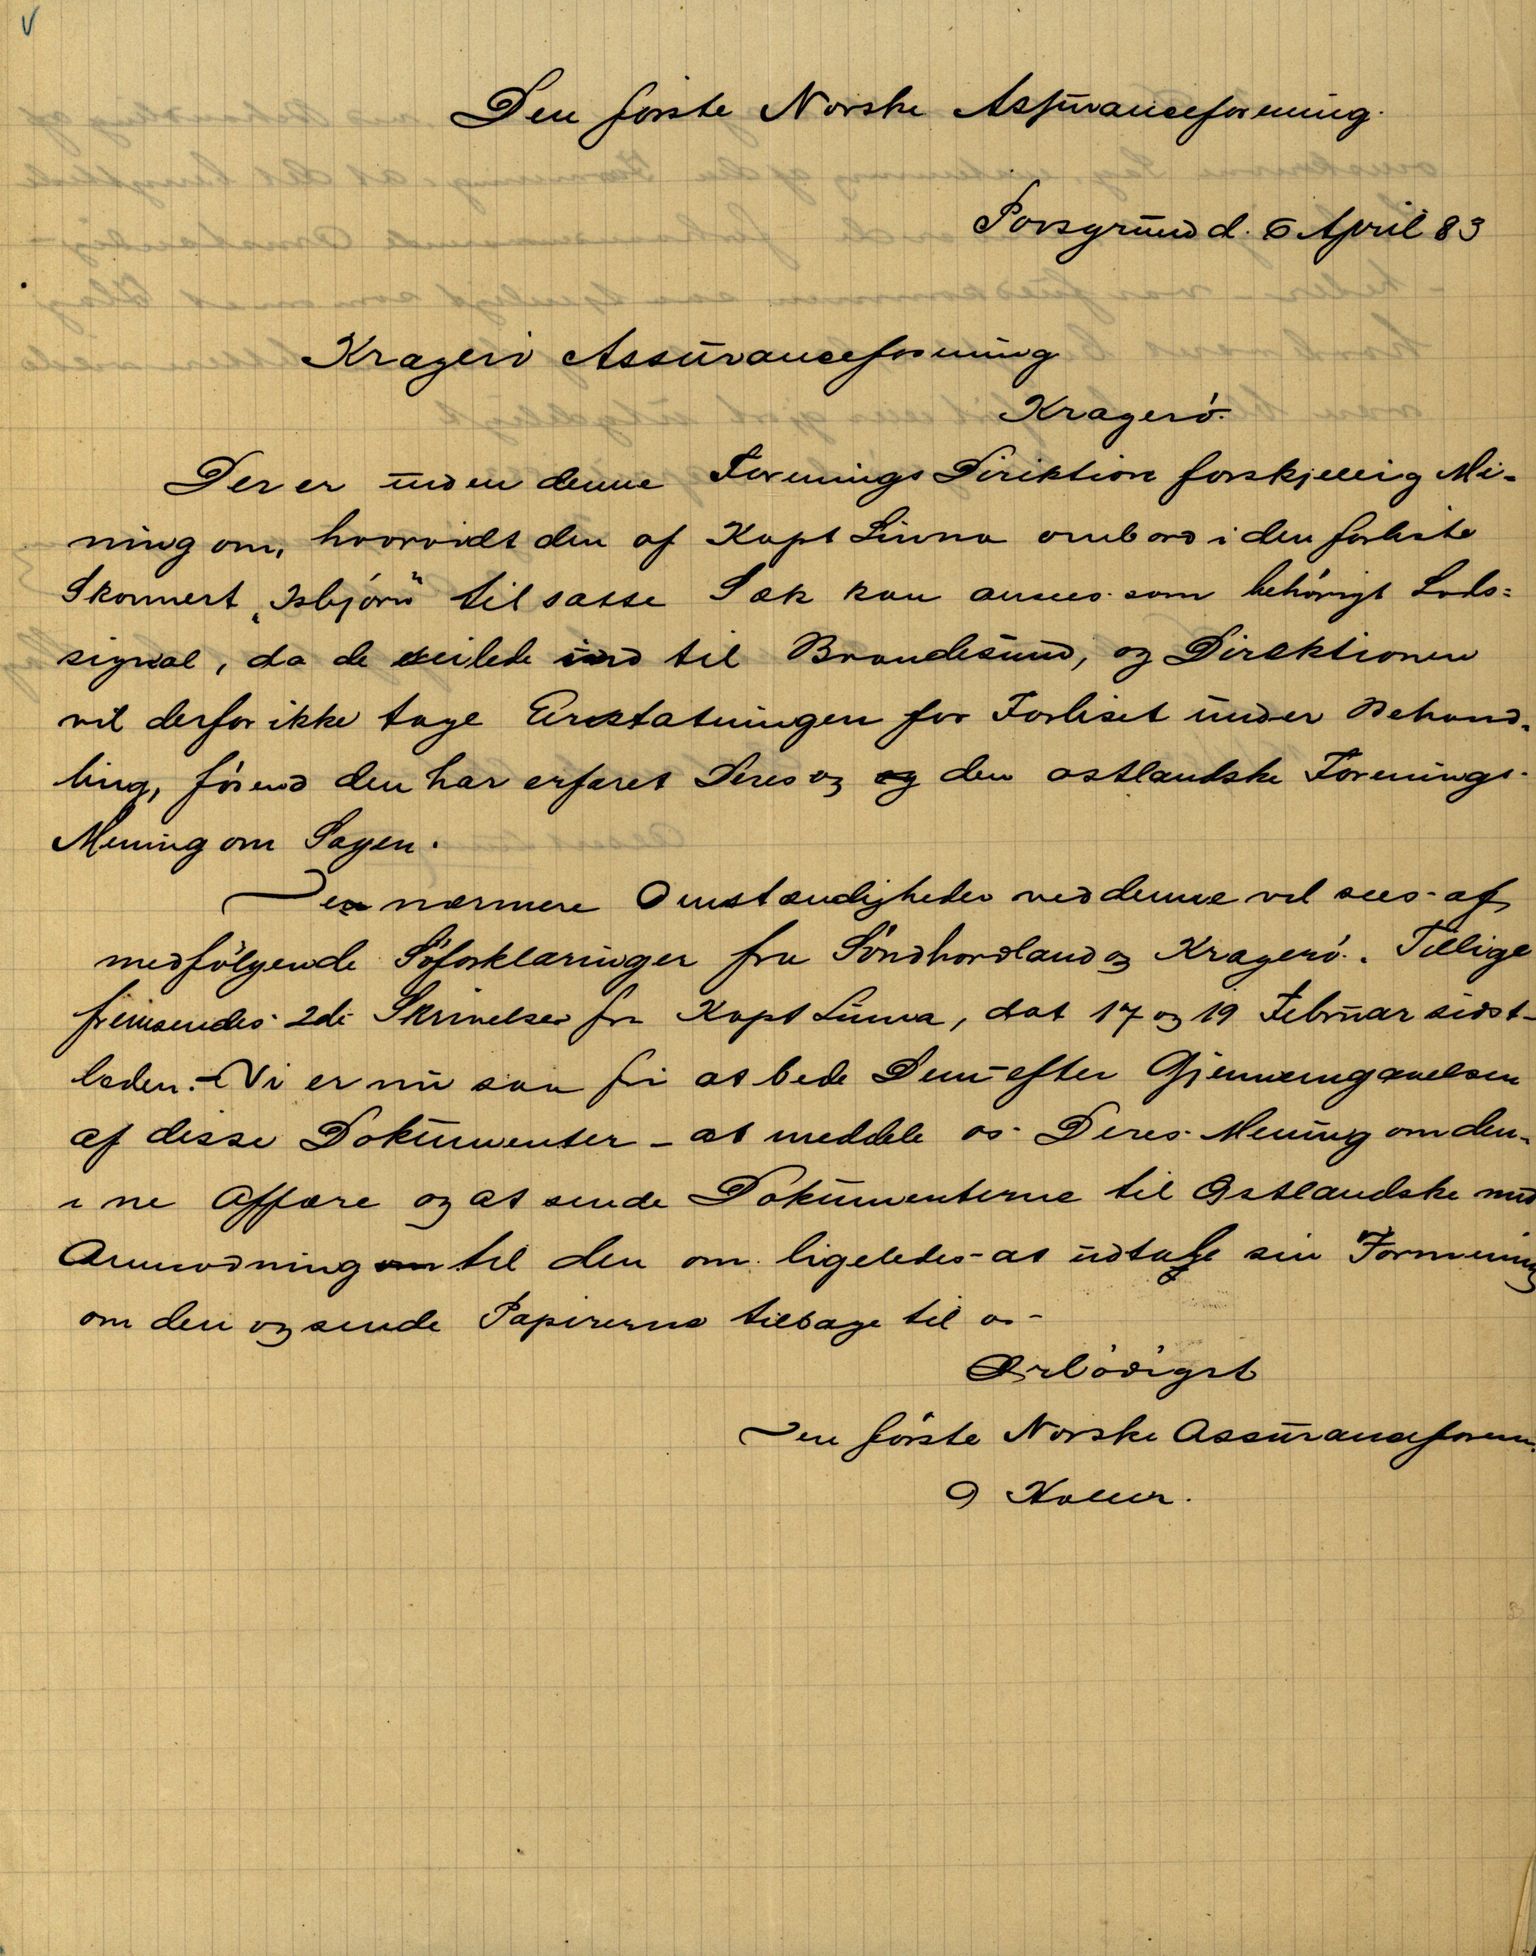 Den første Norske Assuranceforening.
Porsgrund d. 6 April 83
Kragerö Assuranceforening
Kragerö.
Der er inden denne Forenings Direktion forskjellig Me-
ning om, hvorvidt den af Kapt Linna ombord i den forliste
Skonnert "Isbjörn" tilsatte Sæk kan ansees som behörigt Lods-
signal, da de seilede ind til Brandesund, og Direktionen
vil derfor ikke tage Erstatningen for Forliset under Behand-
ling, förend den har erfaret Deres og den østlandske Forenings
Mening om Sagen.
De nærmere Omstændigheder ved denne vil sees af
medfölgende Söforklaringer fra Söndhordland og Kragerö. Tillige
fremsendes 2de Skrivelser fra Kapt Linna, dat 17 og 19 Februar sidst-
leden. - Vi er nu saa fri at bede Dem - efter Gjennemgaaelsen
af disse Dokumenter - at meddele os Deres Mening om den-
ne Affære og at sende Dokumenterne til Østlandske med
Anmodning til den om ligeledes at udtale sin Formening
om den og sende Papirerne tilbage til os -
Ærbödigst
Den förste Norske Assuranceforen.